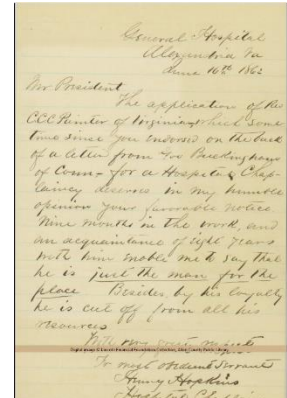 General Hospital
Alexandria Va
June 16th 1862
Mr. President,
The application of Rev
CCC of Virginia, which some
time since you endorsed on the back
of a letter from Gov Buckingham
of Conn- for a Hospital Chap-
laincy deserves in my humble
opinion your favorable notice.
Nine months in the work, and
an acquaintance of eight years
with him enable me to say that
he is just the man for the
place. Besides by his loyalty
he is cut off from all his
resources
With
Yr most obedient Servant
Henry Hopkins
Hospital